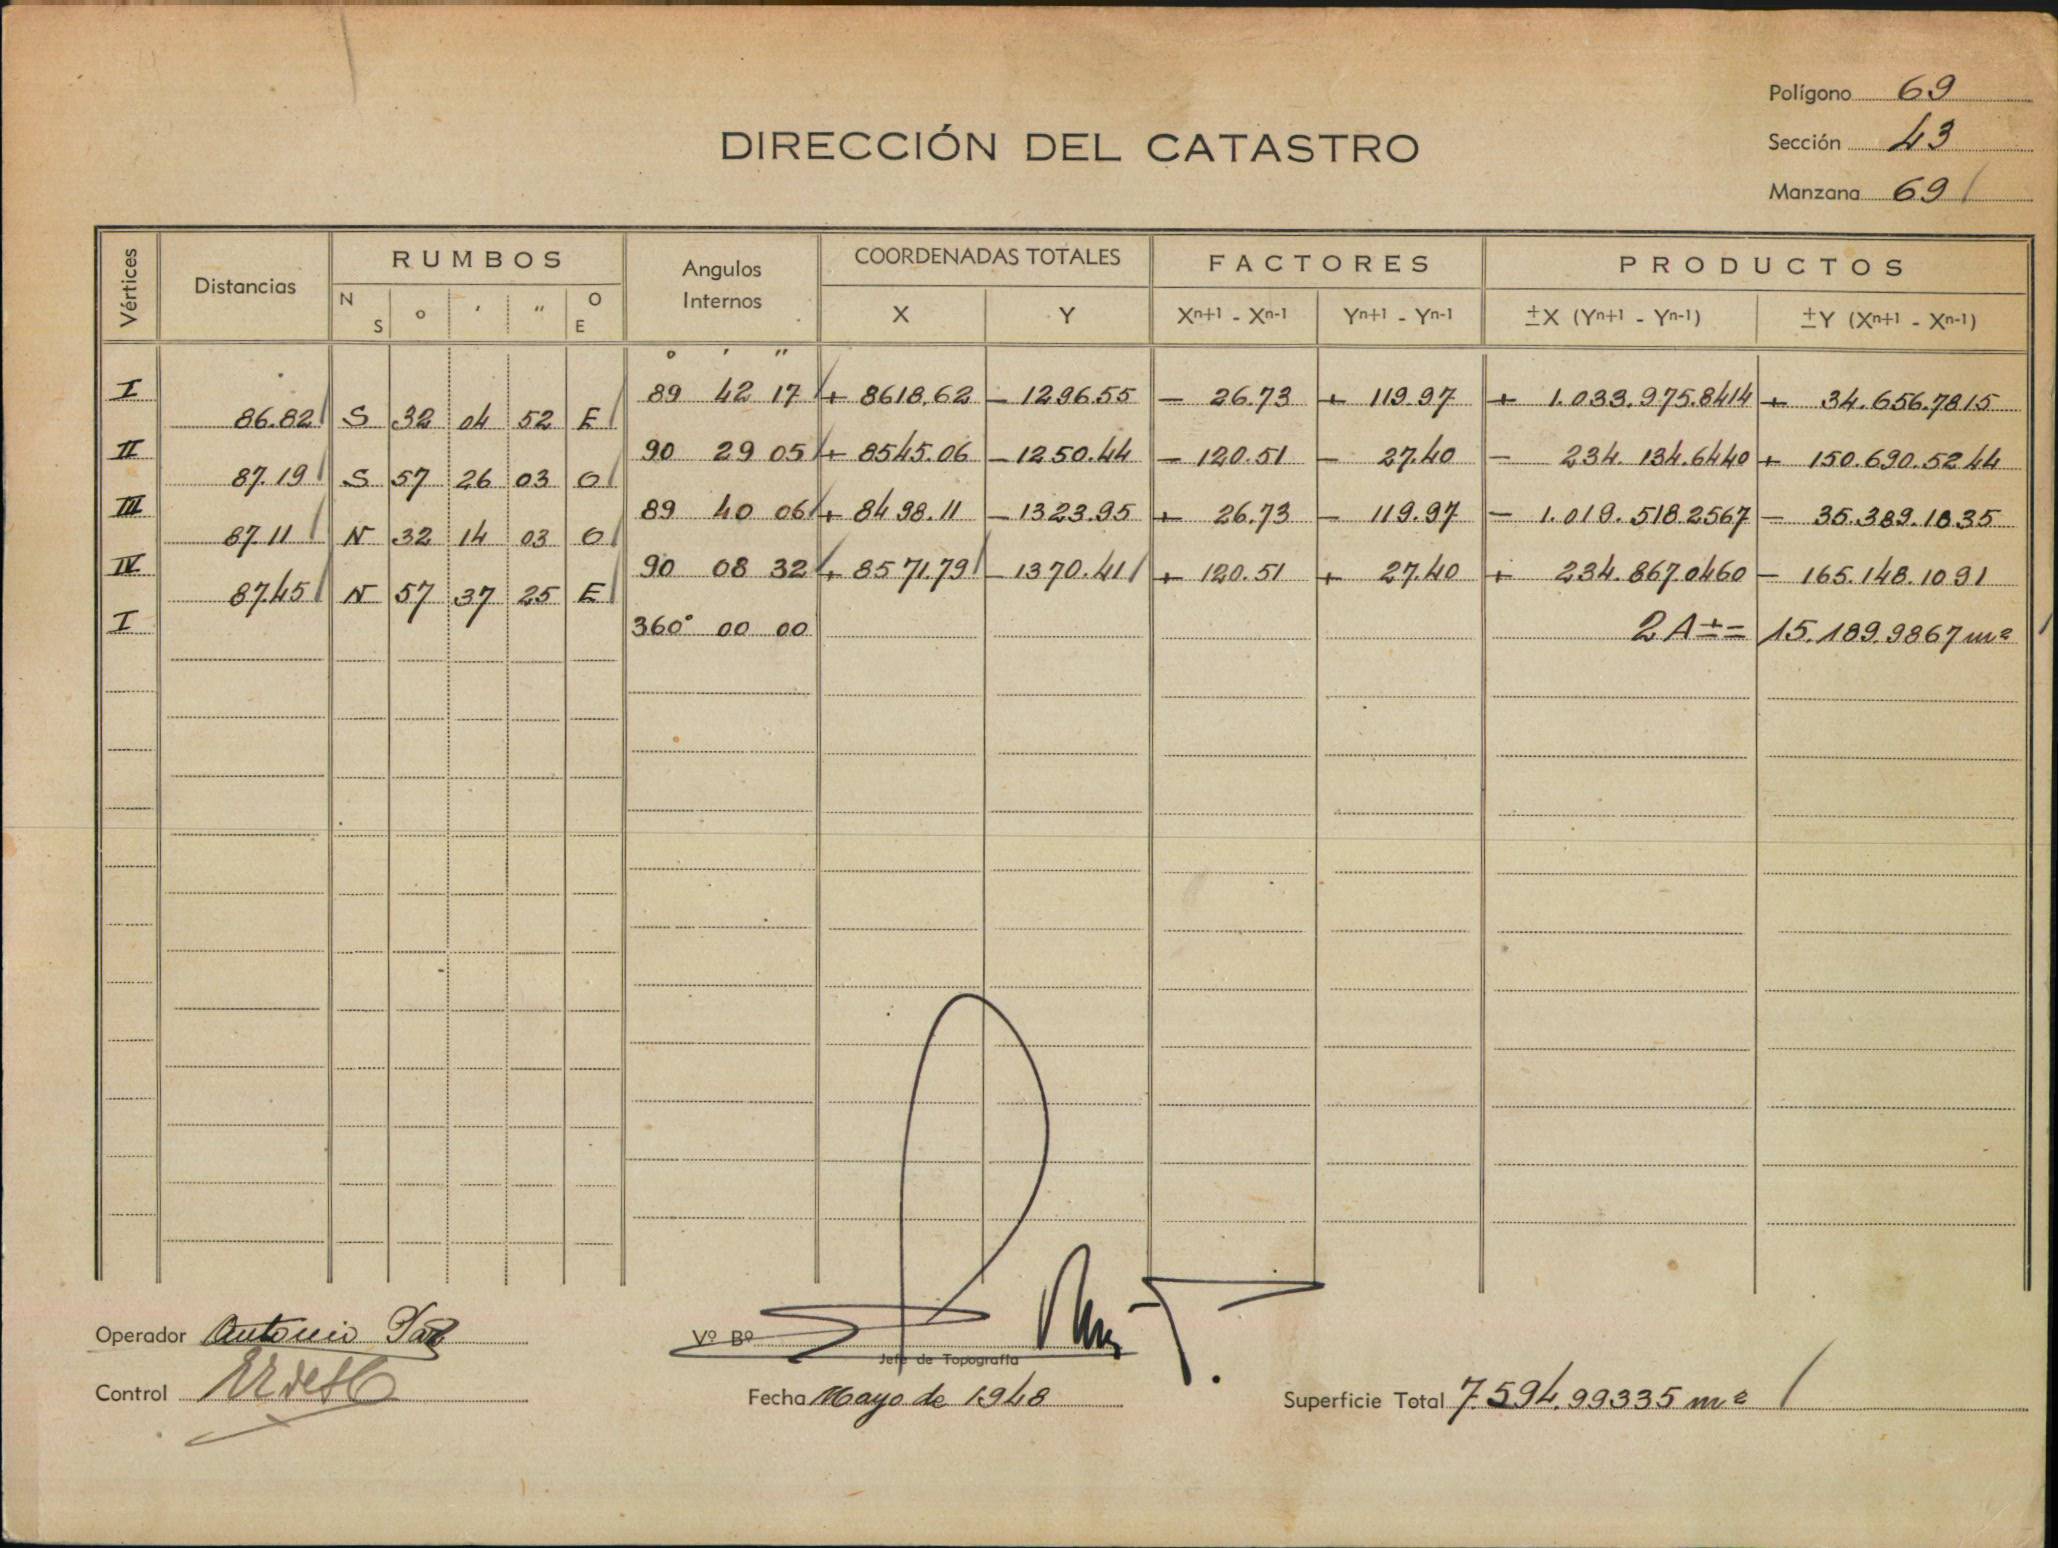 Polígono 69
DIRECCIÓN DEL CATASTRO
Sección 43
Manzana 69
Vértices Distancias RUMBOS Angulos Internos COORDENADAS TOTALES FACTORES PRODUCTOS
N S ° ' " O E X Y Xn+1 - Xn-1 Yn+1 - Yn-1 ±X (Yn+1 - Yn-1) ±Y (Xn+1 - Xn-1)
° ' "
I 89 42 17 + 8618.62 - 1296.55 - 26.73 + 119.97 + 1.033.975.8414 + 34.656.7815
86.82 S 32 04 52 E
II 90 29 05 + 8545.06 - 1250.44 - 120.51 - 27.40 - 234.134.6440 + 150.690.5244
87.19 S 57 26 03 O
III 89 40 06 + 8498.11 - 1323.95 + 26.73 - 119.97 - 1.019.518.2567 - 35.389.1835
87.11 N 32 14 03 O
IV 90 08 32 + 8571.79 - 1370.41 + 120.51 + 27.40 + 234.867.0460 - 165.148.1091
87.45 N 57 37 25 E
I 360° 00 00 2A ± = 15.189.9867 m²
Operador Antonio
Vº Bº
Jefe de Topografía
Control
Fecha Mayo de 1948
Superficie Total 7.594.99335 m²